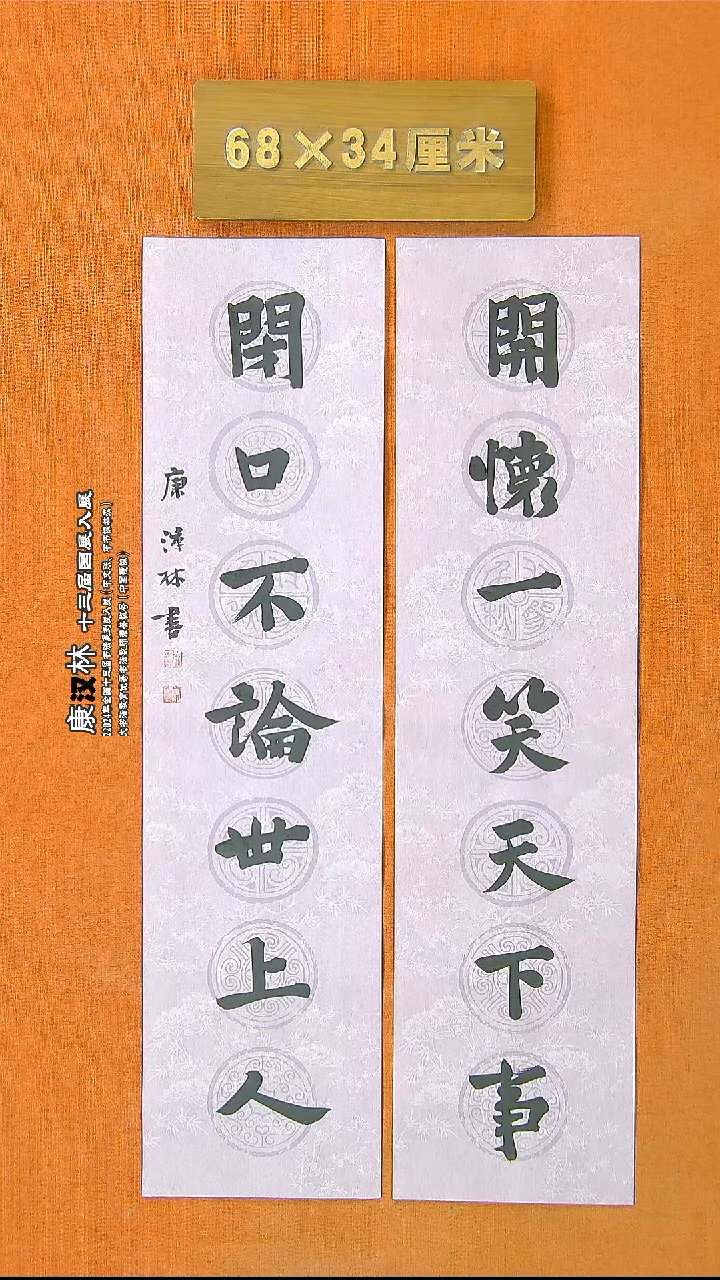 68×34厘米
開懷一笑天下事
閉口不論世上人
康漢林書
康汉林 十三届国展入展